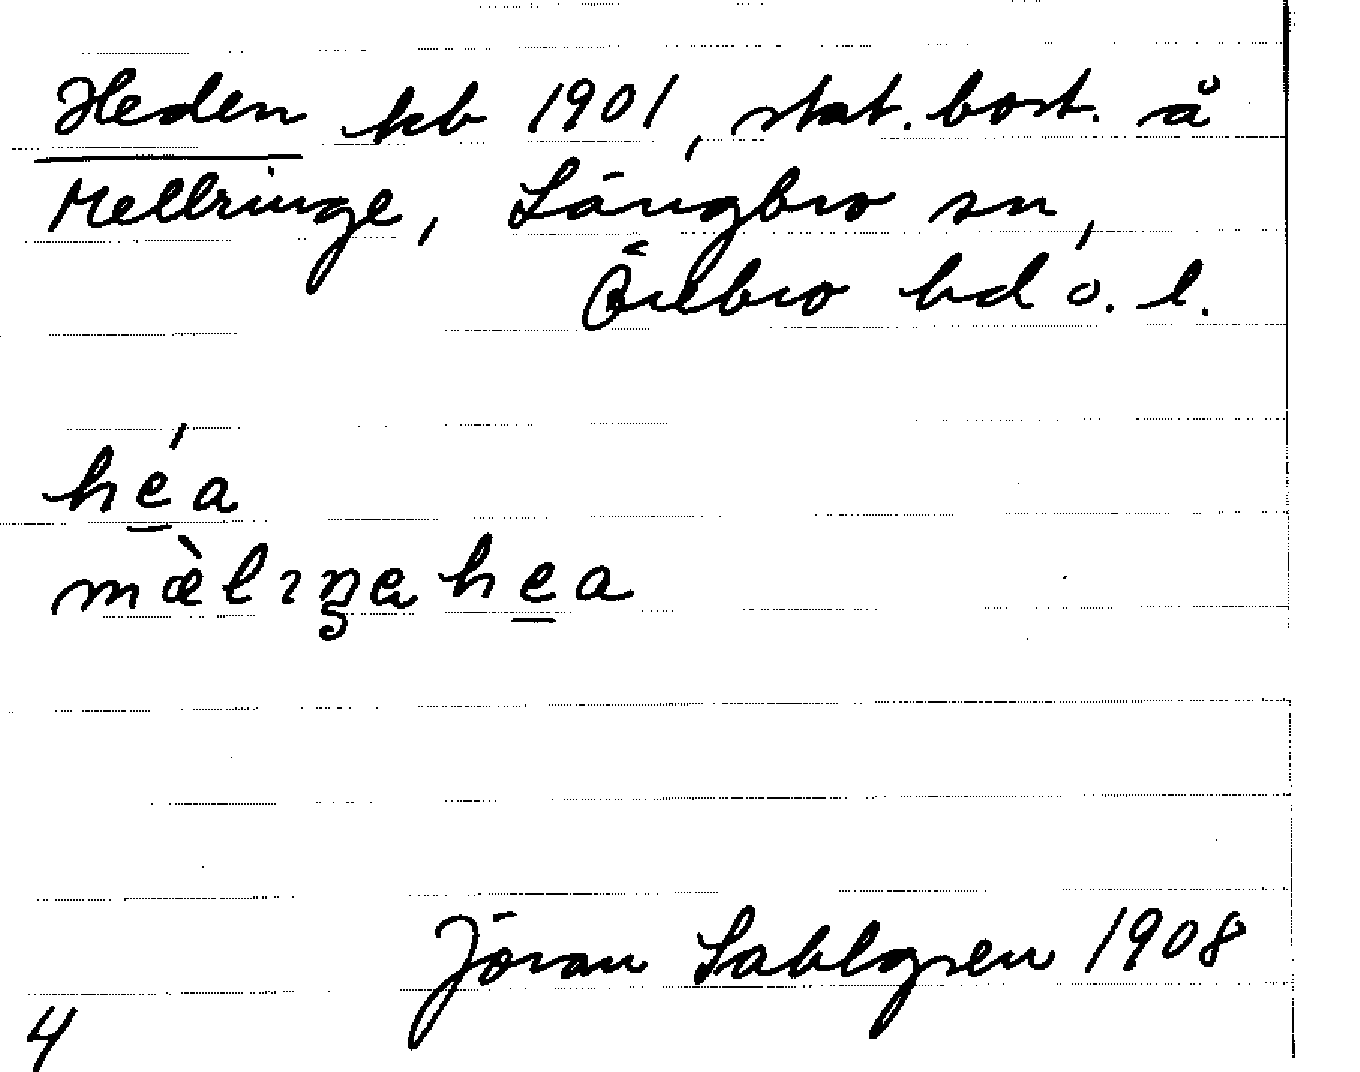 Heden kb 1901, stat. bost. å
Mellringe, Längbro sn,
Örebro hd ö. l.
hé̲a
mæ̀lɿŋehe̲a
Jöran Sahlgren 1908
4